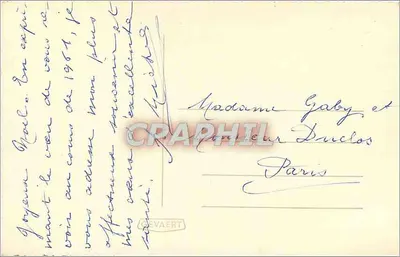 Joyeux Noël. En expri-
mant le vœu de vous re-
voir au cours de 1961, je
vous adresse mon plus
affectueux souvenir et
mes vœux d'excellente
santé.
Madame Gaby et
Monsieur Duclos
Paris
CPAPHIL.COM
GEVAERT